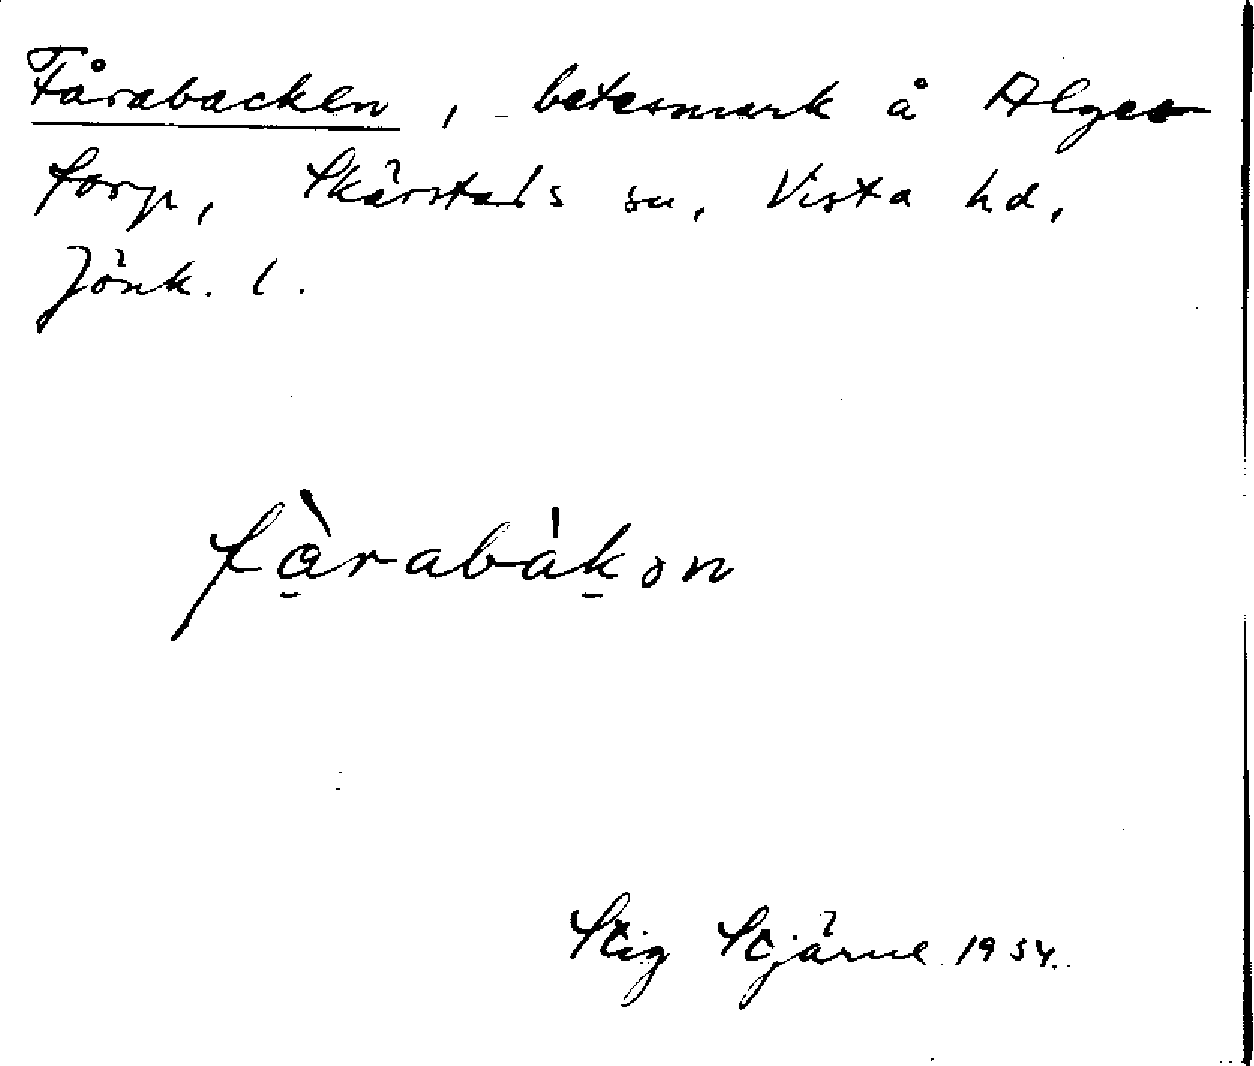 Fårabacken, betesmark å Alges
torp, Skärstads sn, Vista hd,
Jönk. l.
fàrabàkon
Stig Stjärne 1954.